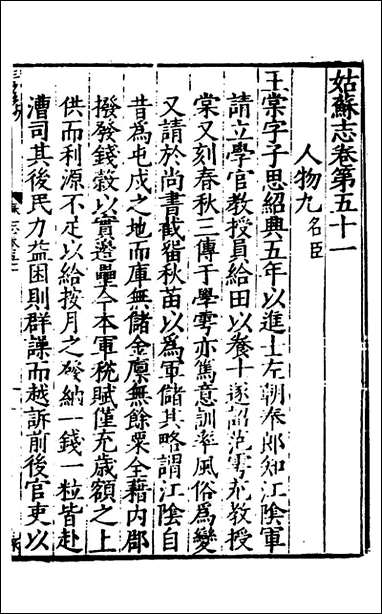 姑蘇志卷第五十一
人物九名臣
王棠字子思紹興五年以進士左朝奉郎知江陰軍
請立學官教授員給田以養士遂詔范雩充教授
棠又刻春秋三傳于學雩亦篤意訓率風俗為變
又請於尚書截留秋苗以為軍儲其略謂江陰自
昔為屯戍之地而庫無儲金廩無餘粟全藉内郡
撥發錢榖以實邊壘今本軍稅賦僅充歲額之上
供而利源不足以給按月之發納一錢一粒皆赴
漕司其後民力益困則群譟而越訴前後官吏以